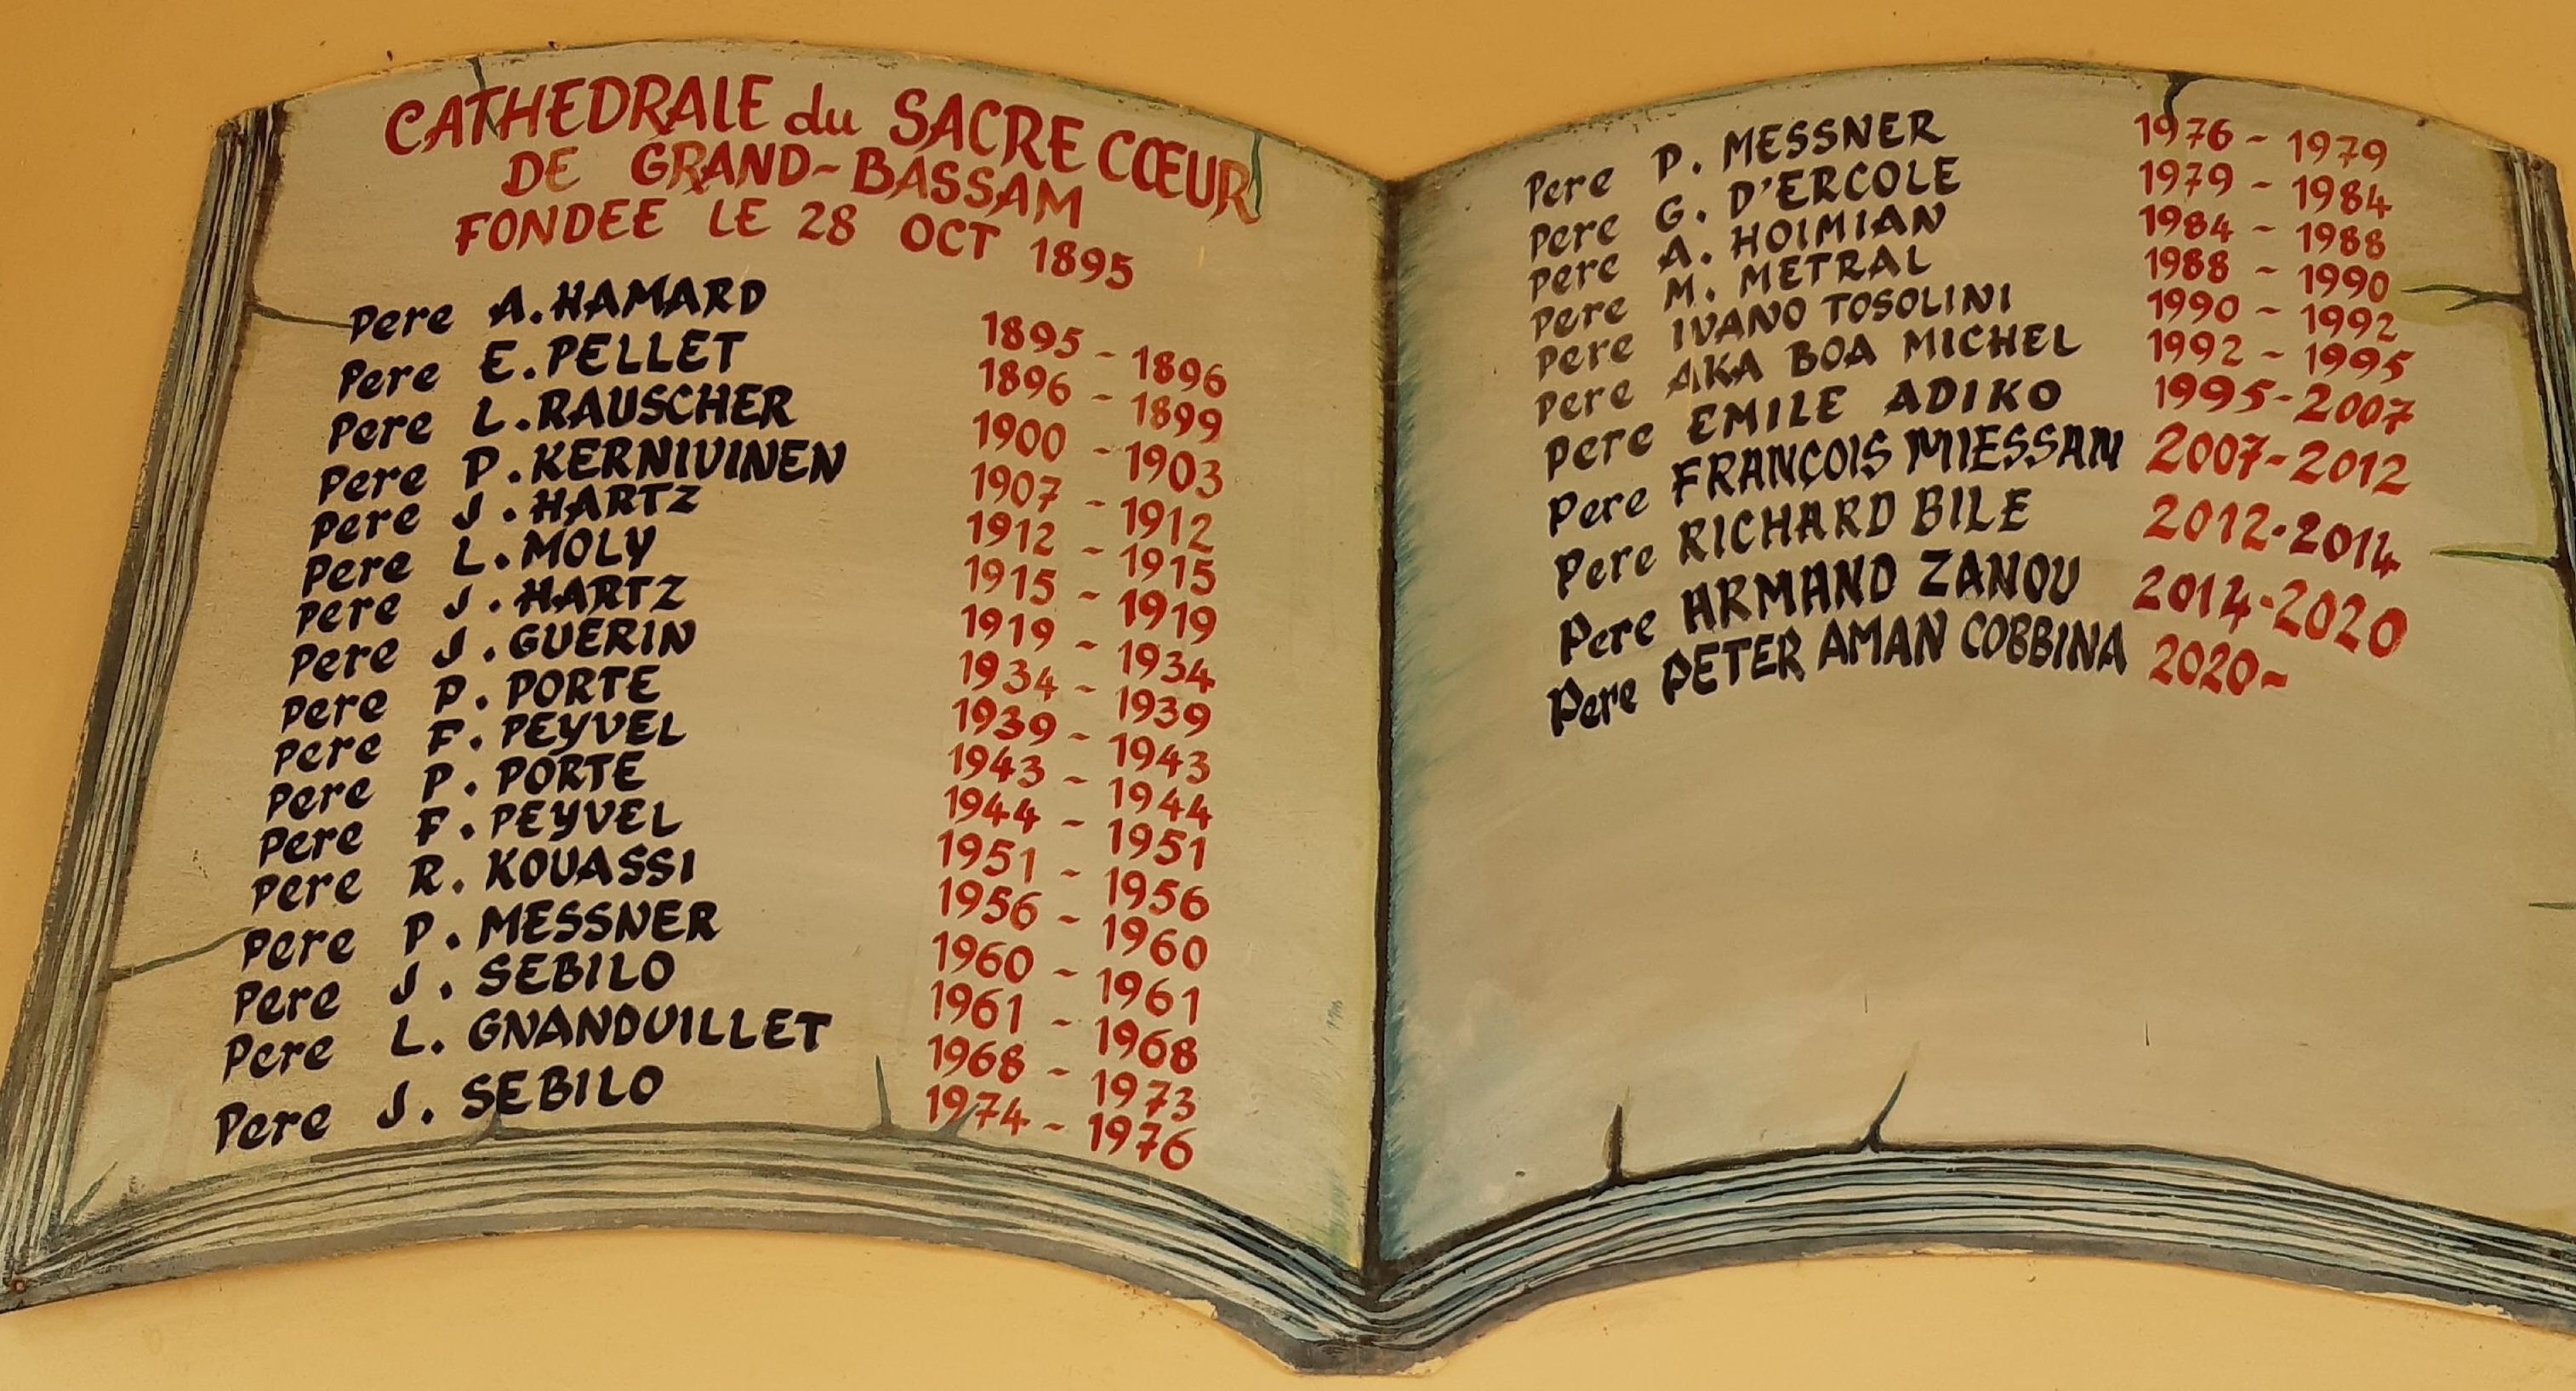 CATHEDRALE du SACRE CŒUR
DE GRAND-BASSAM
FONDEE LE 28 OCT 1895
Pere A. HAMARD 1895 - 1896
Pere E. PELLET 1896 - 1899
Pere L. RAUSCHER 1900 - 1903
Pere P. KERNIVINEN 1907 - 1912
Pere J. HARTZ 1912 - 1915
Pere L. MOLY 1915 - 1919
Pere J. HARTZ 1919 - 1934
Pere J. GUERIN 1934 - 1939
Pere P. PORTE 1939 - 1943
Pere F. PEYVEL 1943 - 1944
Pere P. PORTE 1944 - 1951
Pere F. PEYVEL 1951 - 1956
Pere R. KOUASSI 1956 - 1960
Pere P. MESSNER 1960 - 1961
Pere J. SEBILO 1961 - 1968
Pere L. GNANDUILLET 1968 - 1973
Pere J. SEBILO 1974 - 1976
Pere P. MESSNER 1976 - 1979
Pere G. D'ERCOLE 1979 - 1984
Pere A. HOIMIAN 1984 - 1988
Pere M. METRAL 1988 - 1990
Pere IVANO TOSOLINI 1990 - 1992
Pere AKA BOA MICHEL 1992 - 1995
Pere EMILE ADIKO 1995-2007
Pere FRANÇOIS MIESSAN 2007-2012
Pere RICHARD BILE 2012-2014
Pere ARMAND ZANOU 2014-2020
Pere PETER AMAN COBBINA 2020-